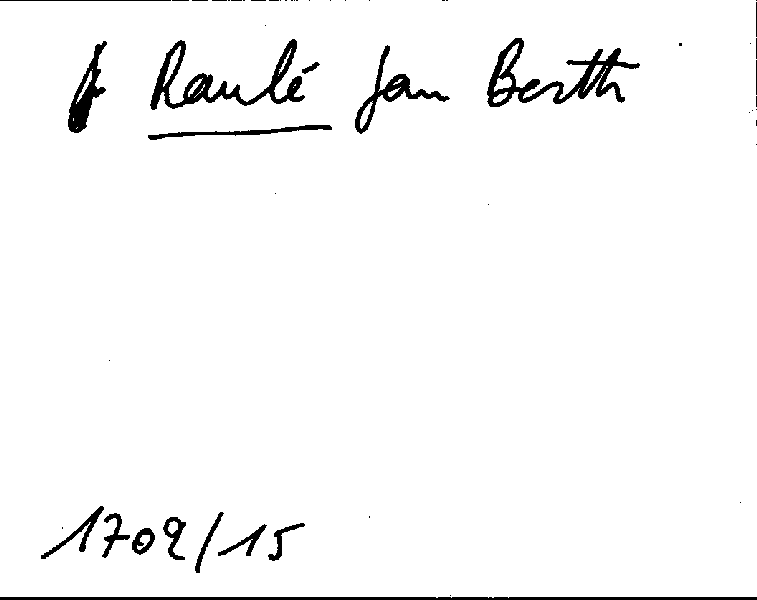 Raulé Jan Berth
1709/15